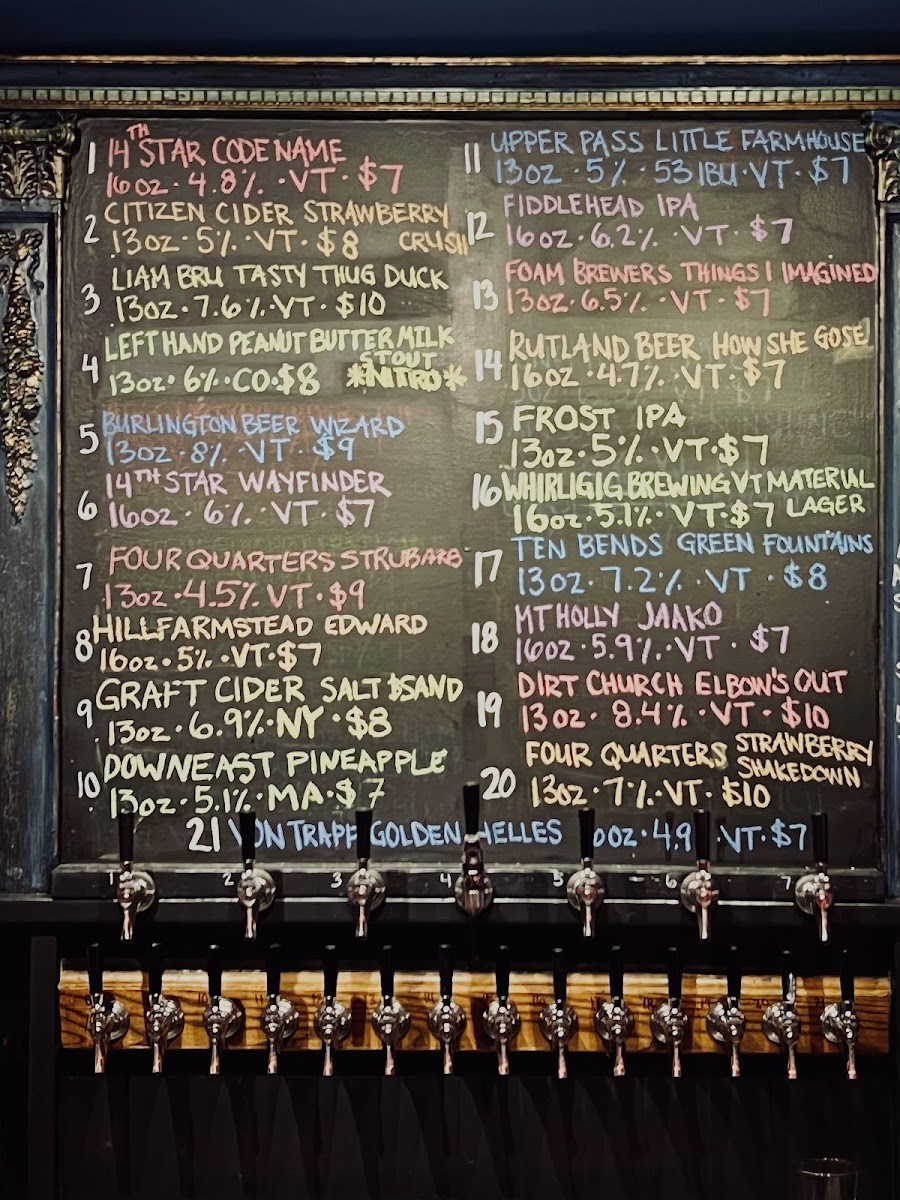 1 14TH STAR CODE NAME
16oz · 4.8% · VT · $7
2 CITIZEN CIDER STRAWBERRY
CRUSH
13oz · 5% · VT · $8
3 LIAM BRU TASTY THUG DUCK
13oz · 7.6% · VT · $10
4 LEFT HAND PEANUT BUTTER MILK
STOUT
13oz · 6% · CO · $8 *NITRO*
5 BURLINGTON BEER WIZARD
13oz · 8% · VT · $9
6 14TH STAR WAYFINDER
16oz · 6% · VT · $7
7 FOUR QUARTERS STRUBARB
13oz · 4.5% VT · $9
8 HILLFARMSTEAD EDWARD
16oz · 5% · VT · $7
9 GRAFT CIDER SALT & SAND
13oz · 6.9% · NY · $8
10 DOWNEAST PINEAPPLE
13oz · 5.1% · MA · $7
11 UPPER PASS LITTLE FARMHOUSE
13oz · 5% · 53 IBU · VT · $7
12 FIDDLEHEAD IPA
16oz · 6.2% · VT · $7
13 FOAM BREWERS THINGS I IMAGINED
13oz · 6.5% · VT · $7
14 RUTLAND BEER HOW SHE GOSE!
16oz · 4.7% · VT · $7
15 FROST IPA
13oz · 5% · VT · $7
16 WHIRLIGIG BREWING VT MATERIAL
LAGER
16oz · 5.1% · VT · $7
17 TEN BENDS GREEN FOUNTAINS
13oz · 7.2% · VT · $8
18 MT HOLLY JAAKO
16oz · 5.9% · VT · $7
19 DIRT CHURCH ELBOW'S OUT
13oz · 8.4% · VT · $10
20 FOUR QUARTERS STRAWBERRY
SHAKEDOWN
13oz · 7% · VT · $10
21 VON TRAPP GOLDEN HELLES 4.9 · VT · $7
1 2 3 4 5 6 7